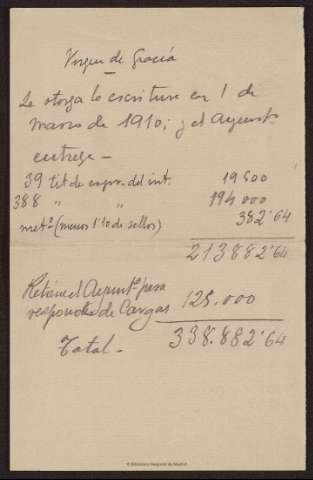 Virgen de Gracia
Se otorga la escritura en 1 de
marzo de 1910; y el Ayuntº
entrega —
39 tit de expr. del int. 19500
388 " " 194000
metº (menos 1'10 de sellos) 382'64
213882'64
Retiene el Ayuntº para
responder de Cargas 125.000
338.882'64
Total —
© Biblioteca Regional de Madrid